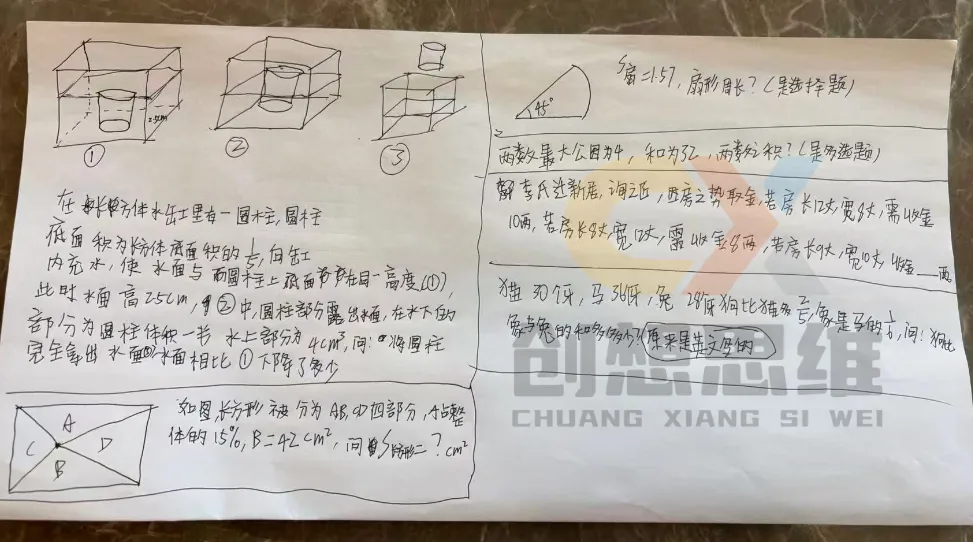 ①
②
③
在长方体水缸里有一圆柱,圆柱
底面积为长方体底面积的1/5,向缸
内充水,使水面与圆柱上底面在同一高度(①),
此时水面高25cm,②中,圆柱部分露出水面,在水下的
部分为圆柱体积一半,水上部分为4cm³,问:将圆柱
完全拿出水面,水面相比①下降了多少
A
C
D
B
如图,长方形被分为AB,CD四部分,A占整
体的15%,B=42cm²,问S长方形=?cm²
45°
S扇=1.57,扇形周长?(是选择题)
两数最大公因为4,和为32,两数之积?(是多选题)
李氏迁新居,询之匠,匠房之势取金,若房长12丈,宽8丈,需收金
10两,若房长8丈,宽12丈,需收金8两,若房长9丈,宽10丈,收金___两
猫30仔,马36仔,兔28仔狗比猫多2/5,象是马的1/6,问:狗比
象与兔的和多多少?(原来是英文写的)
创想思维
CHUANG XIANG SI WEI